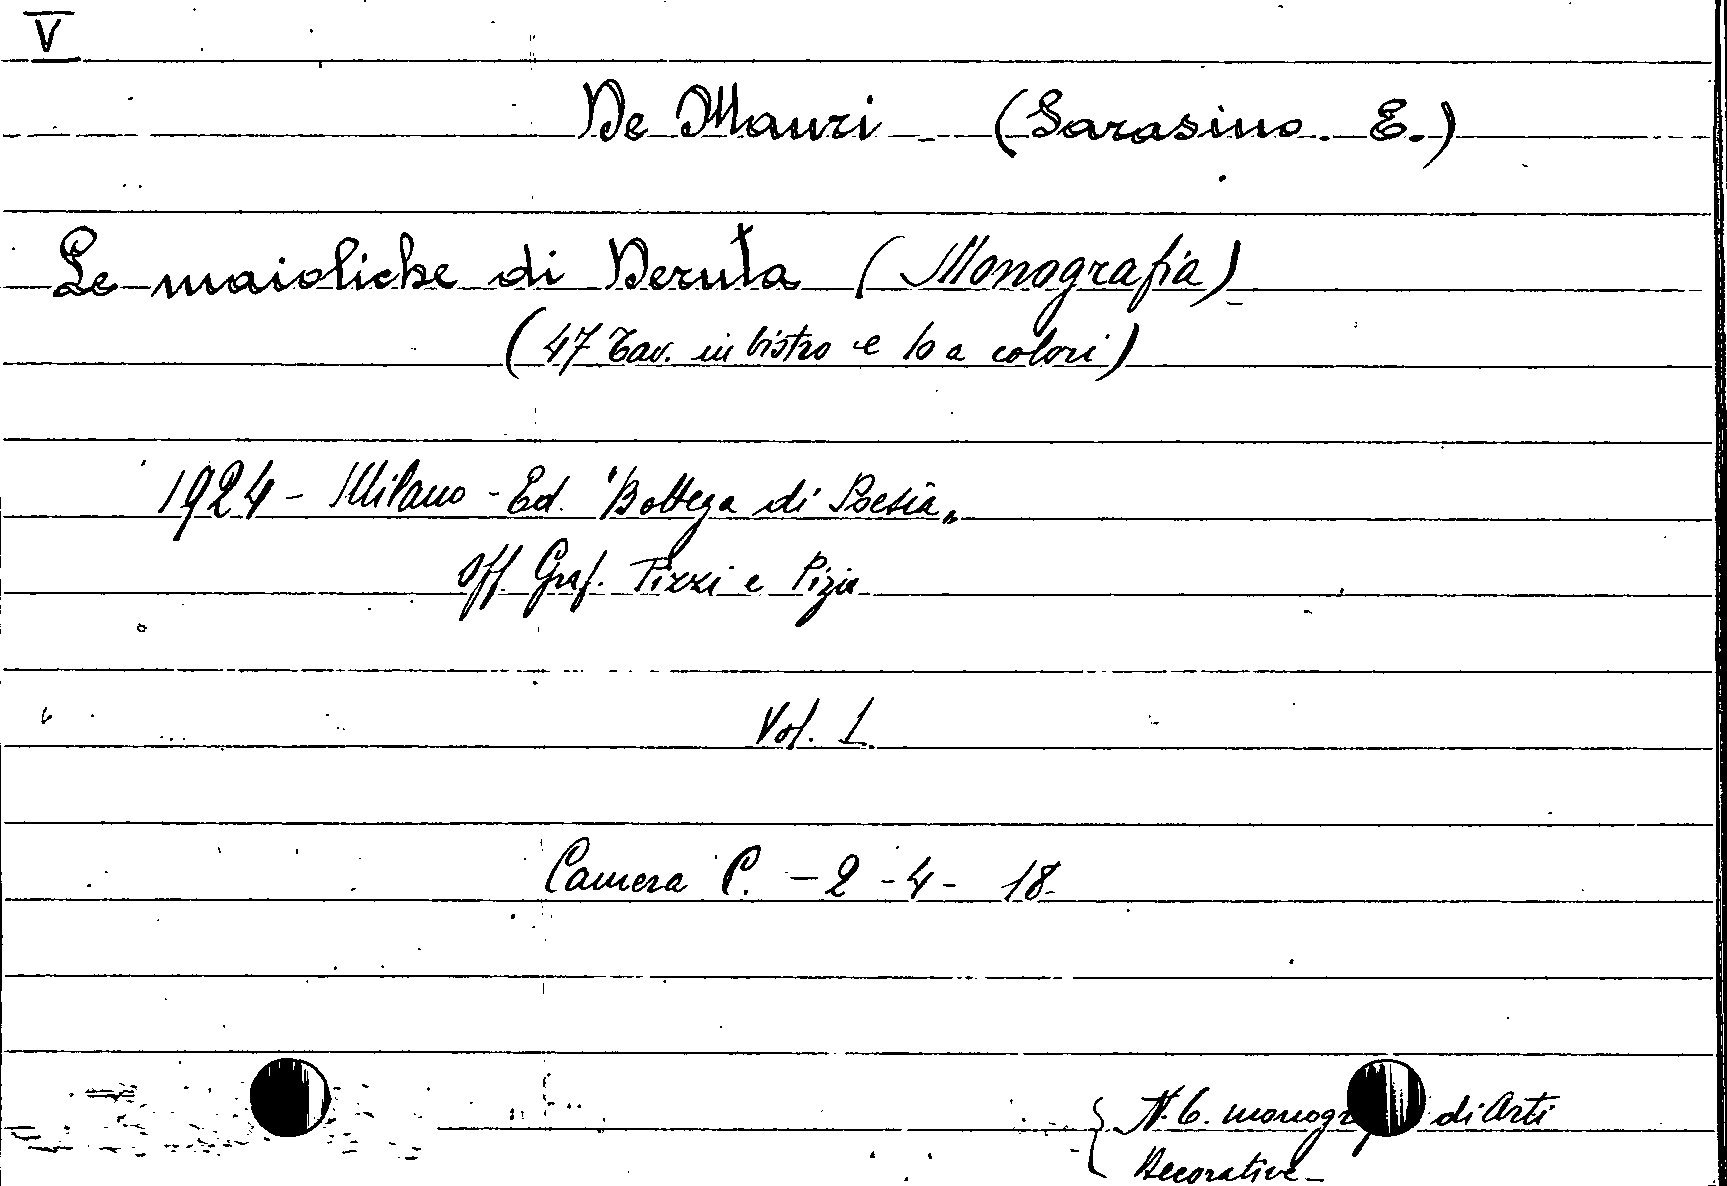 V
De Mauri - (Sarasino. E.)
Le maioliche di Deruta (Monografia)
(47 Tav. in bistro e 10 a colori)
1924 - Milano - Ed. "Bottega di Poesia"
Off. Graf. Pizzi e Pizio
Vol. 1.
Camera C. - 2 - 4 - 18.
N. 6. monogr di Arti
Decorative -